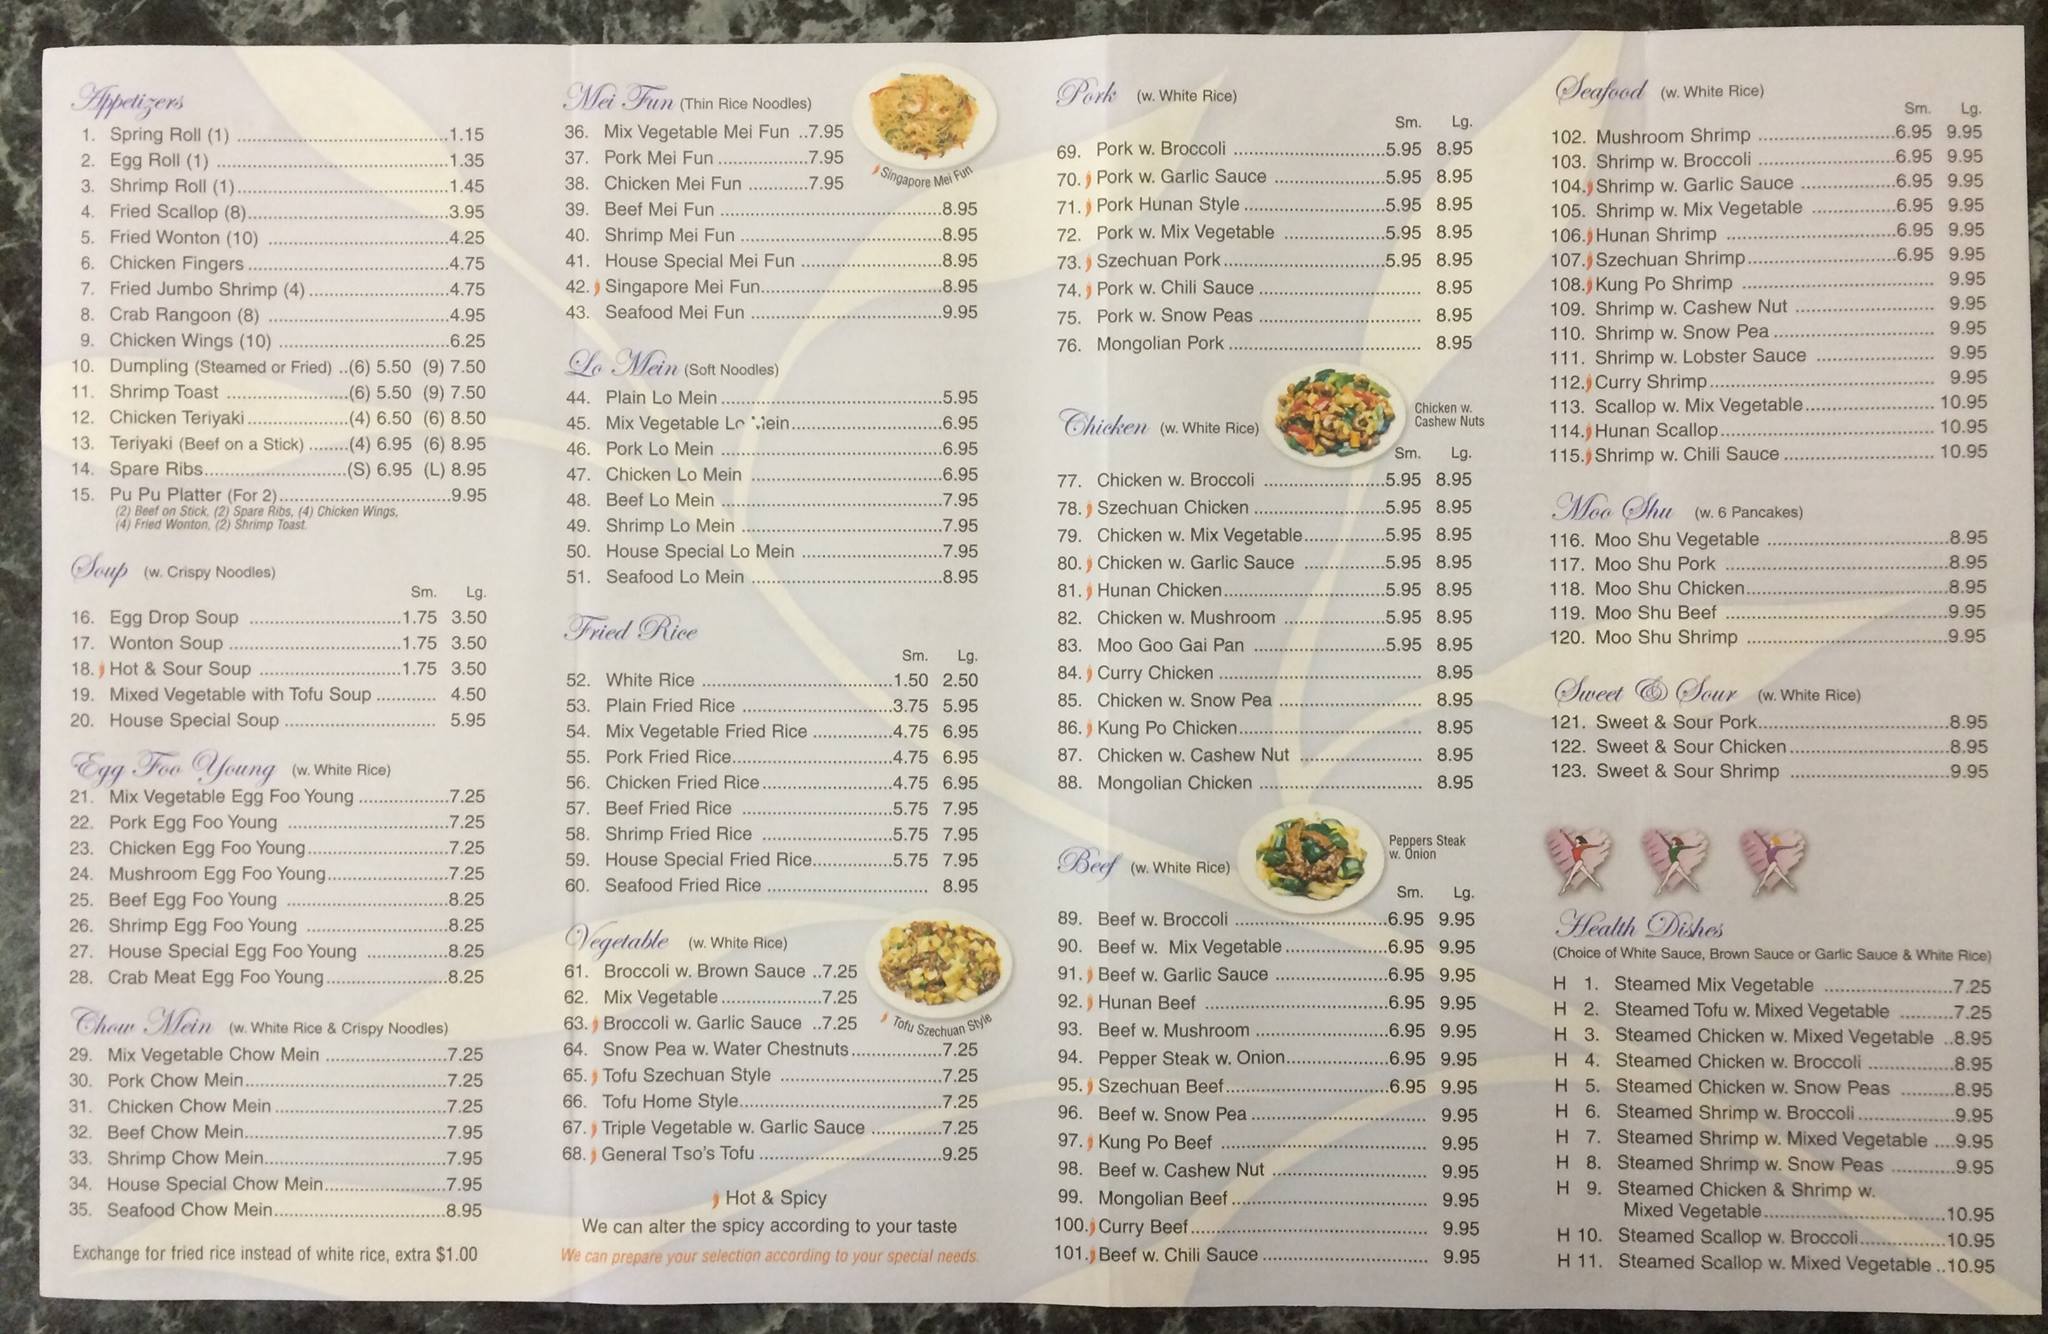 Appetizers
1. Spring Roll (1) ..........1.15
2. Egg Roll (1) ..........1.35
3. Shrimp Roll (1)..........1.45
4. Fried Scallop (8)..........3.95
5. Fried Wonton (10) ..........4.25
6. Chicken Fingers..........4.75
7. Fried Jumbo Shrimp (4)..........4.75
8. Crab Rangoon (8) ..........4.95
9. Chicken Wings (10) ..........6.25
10. Dumpling (Steamed or Fried) ..(6) 5.50 (9) 7.50
11. Shrimp Toast ..........(6) 5.50 (9) 7.50
12. Chicken Teriyaki..........(4) 6.50 (6) 8.50
13. Teriyaki (Beef on a Stick) .......(4) 6.95 (6) 8.95
14. Spare Ribs..........(S) 6.95 (L) 8.95
15. Pu Pu Platter (For 2)..........9.95
(2) Beef on Stick, (2) Spare Ribs, (4) Chicken Wings,
(4) Fried Wonton, (2) Shrimp Toast.
Soup (w. Crispy Noodles)
Sm. Lg.
16. Egg Drop Soup ..........1.75 3.50
17. Wonton Soup ..........1.75 3.50
18. Hot & Sour Soup ..........1.75 3.50
19. Mixed Vegetable with Tofu Soup .......... 4.50
20. House Special Soup .......... 5.95
Egg Foo Young (w. White Rice)
21. Mix Vegetable Egg Foo Young ..........7.25
22. Pork Egg Foo Young ..........7.25
23. Chicken Egg Foo Young..........7.25
24. Mushroom Egg Foo Young..........7.25
25. Beef Egg Foo Young ..........8.25
26. Shrimp Egg Foo Young ..........8.25
27. House Special Egg Foo Young ..........8.25
28. Crab Meat Egg Foo Young..........8.25
Chow Mein (w. White Rice & Crispy Noodles)
29. Mix Vegetable Chow Mein ..........7.25
30. Pork Chow Mein..........7.25
31. Chicken Chow Mein..........7.25
32. Beef Chow Mein..........7.95
33. Shrimp Chow Mein..........7.95
34. House Special Chow Mein..........7.95
35. Seafood Chow Mein..........8.95
Exchange for fried rice instead of white rice, extra $1.00
Mei Fun (Thin Rice Noodles)
36. Mix Vegetable Mei Fun ..7.95
37. Pork Mei Fun ..........7.95
38. Chicken Mei Fun ..........7.95
Singapore Mei Fun
39. Beef Mei Fun ..........8.95
40. Shrimp Mei Fun ..........8.95
41. House Special Mei Fun ..........8.95
42. Singapore Mei Fun..........8.95
43. Seafood Mei Fun ..........9.95
Lo Mein (Soft Noodles)
44. Plain Lo Mein ..........5.95
45. Mix Vegetable Lo Mein..........6.95
46. Pork Lo Mein ..........6.95
47. Chicken Lo Mein ..........6.95
48. Beef Lo Mein ..........7.95
49. Shrimp Lo Mein ..........7.95
50. House Special Lo Mein ..........7.95
51. Seafood Lo Mein ..........8.95
Fried Rice
Sm. Lg.
52. White Rice ..........1.50 2.50
53. Plain Fried Rice ..........3.75 5.95
54. Mix Vegetable Fried Rice ..........4.75 6.95
55. Pork Fried Rice..........4.75 6.95
56. Chicken Fried Rice..........4.75 6.95
57. Beef Fried Rice ..........5.75 7.95
58. Shrimp Fried Rice ..........5.75 7.95
59. House Special Fried Rice..........5.75 7.95
60. Seafood Fried Rice .......... 8.95
Vegetable (w. White Rice)
61. Broccoli w. Brown Sauce ..7.25
62. Mix Vegetable..........7.25
63. Broccoli w. Garlic Sauce ..7.25
Tofu Szechuan Style
64. Snow Pea w. Water Chestnuts..........7.25
65. Tofu Szechuan Style ..........7.25
66. Tofu Home Style..........7.25
67. Triple Vegetable w. Garlic Sauce ..........7.25
68. General Tso's Tofu ..........9.25
Hot & Spicy
We can alter the spicy according to your taste
We can prepare your selection according to your special needs.
Pork (w. White Rice)
Sm. Lg.
69. Pork w. Broccoli ..........5.95 8.95
70. Pork w. Garlic Sauce ..........5.95 8.95
71. Pork Hunan Style ..........5.95 8.95
72. Pork w. Mix Vegetable ..........5.95 8.95
73. Szechuan Pork..........5.95 8.95
74. Pork w. Chili Sauce .......... 8.95
75. Pork w. Snow Peas .......... 8.95
76. Mongolian Pork .......... 8.95
Chicken (w. White Rice)
Chicken w.
Cashew Nuts
Sm. Lg.
77. Chicken w. Broccoli ..........5.95 8.95
78. Szechuan Chicken ..........5.95 8.95
79. Chicken w. Mix Vegetable..........5.95 8.95
80. Chicken w. Garlic Sauce ..........5.95 8.95
81. Hunan Chicken..........5.95 8.95
82. Chicken w. Mushroom ..........5.95 8.95
83. Moo Goo Gai Pan ..........5.95 8.95
84. Curry Chicken .......... 8.95
85. Chicken w. Snow Pea .......... 8.95
86. Kung Po Chicken.......... 8.95
87. Chicken w. Cashew Nut .......... 8.95
88. Mongolian Chicken .......... 8.95
Beef (w. White Rice)
Peppers Steak
w. Onion
Sm. Lg.
89. Beef w. Broccoli ..........6.95 9.95
90. Beef w. Mix Vegetable..........6.95 9.95
91. Beef w. Garlic Sauce ..........6.95 9.95
92. Hunan Beef ..........6.95 9.95
93. Beef w. Mushroom ..........6.95 9.95
94. Pepper Steak w. Onion..........6.95 9.95
95. Szechuan Beef..........6.95 9.95
96. Beef w. Snow Pea .......... 9.95
97. Kung Po Beef .......... 9.95
98. Beef w. Cashew Nut .......... 9.95
99. Mongolian Beef .......... 9.95
100. Curry Beef.......... 9.95
101. Beef w. Chili Sauce .......... 9.95
Seafood (w. White Rice)
Sm. Lg.
102. Mushroom Shrimp ..........6.95 9.95
103. Shrimp w. Broccoli ..........6.95 9.95
104. Shrimp w. Garlic Sauce ..........6.95 9.95
105. Shrimp w. Mix Vegetable ..........6.95 9.95
106. Hunan Shrimp ..........6.95 9.95
107. Szechuan Shrimp..........6.95 9.95
108. Kung Po Shrimp .......... 9.95
109. Shrimp w. Cashew Nut .......... 9.95
110. Shrimp w. Snow Pea .......... 9.95
111. Shrimp w. Lobster Sauce .......... 9.95
112. Curry Shrimp.......... 9.95
113. Scallop w. Mix Vegetable.......... 10.95
114. Hunan Scallop.......... 10.95
115. Shrimp w. Chili Sauce .......... 10.95
Moo Shu (w. 6 Pancakes)
116. Moo Shu Vegetable ..........8.95
117. Moo Shu Pork ..........8.95
118. Moo Shu Chicken..........8.95
119. Moo Shu Beef ..........9.95
120. Moo Shu Shrimp ..........9.95
Sweet & Sour (w. White Rice)
121. Sweet & Sour Pork..........8.95
122. Sweet & Sour Chicken..........8.95
123. Sweet & Sour Shrimp ..........9.95
Health Dishes
(Choice of White Sauce, Brown Sauce or Garlic Sauce & White Rice)
H 1. Steamed Mix Vegetable ..........7.25
H 2. Steamed Tofu w. Mixed Vegetable ..........7.25
H 3. Steamed Chicken w. Mixed Vegetable ..8.95
H 4. Steamed Chicken w. Broccoli ..........8.95
H 5. Steamed Chicken w. Snow Peas ..........8.95
H 6. Steamed Shrimp w. Broccoli..........9.95
H 7. Steamed Shrimp w. Mixed Vegetable ....9.95
H 8. Steamed Shrimp w. Snow Peas ..........9.95
H 9. Steamed Chicken & Shrimp w.
Mixed Vegetable..........10.95
H 10. Steamed Scallop w. Broccoli..........10.95
H 11. Steamed Scallop w. Mixed Vegetable ..10.95